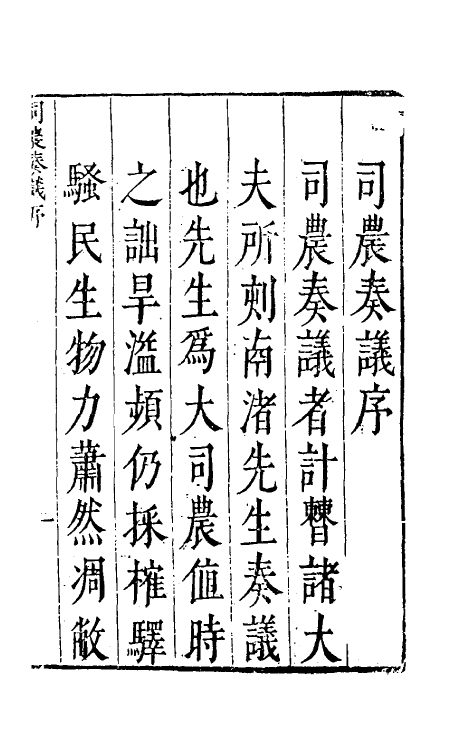 司農奏議序
司農奏議者計曹諸大
夫所刻南渚先生奏議
也先生爲大司農値時
之詘旱濫頻仍採榷驛
騷民生物力蕭然凋敝
司農奏議序
一